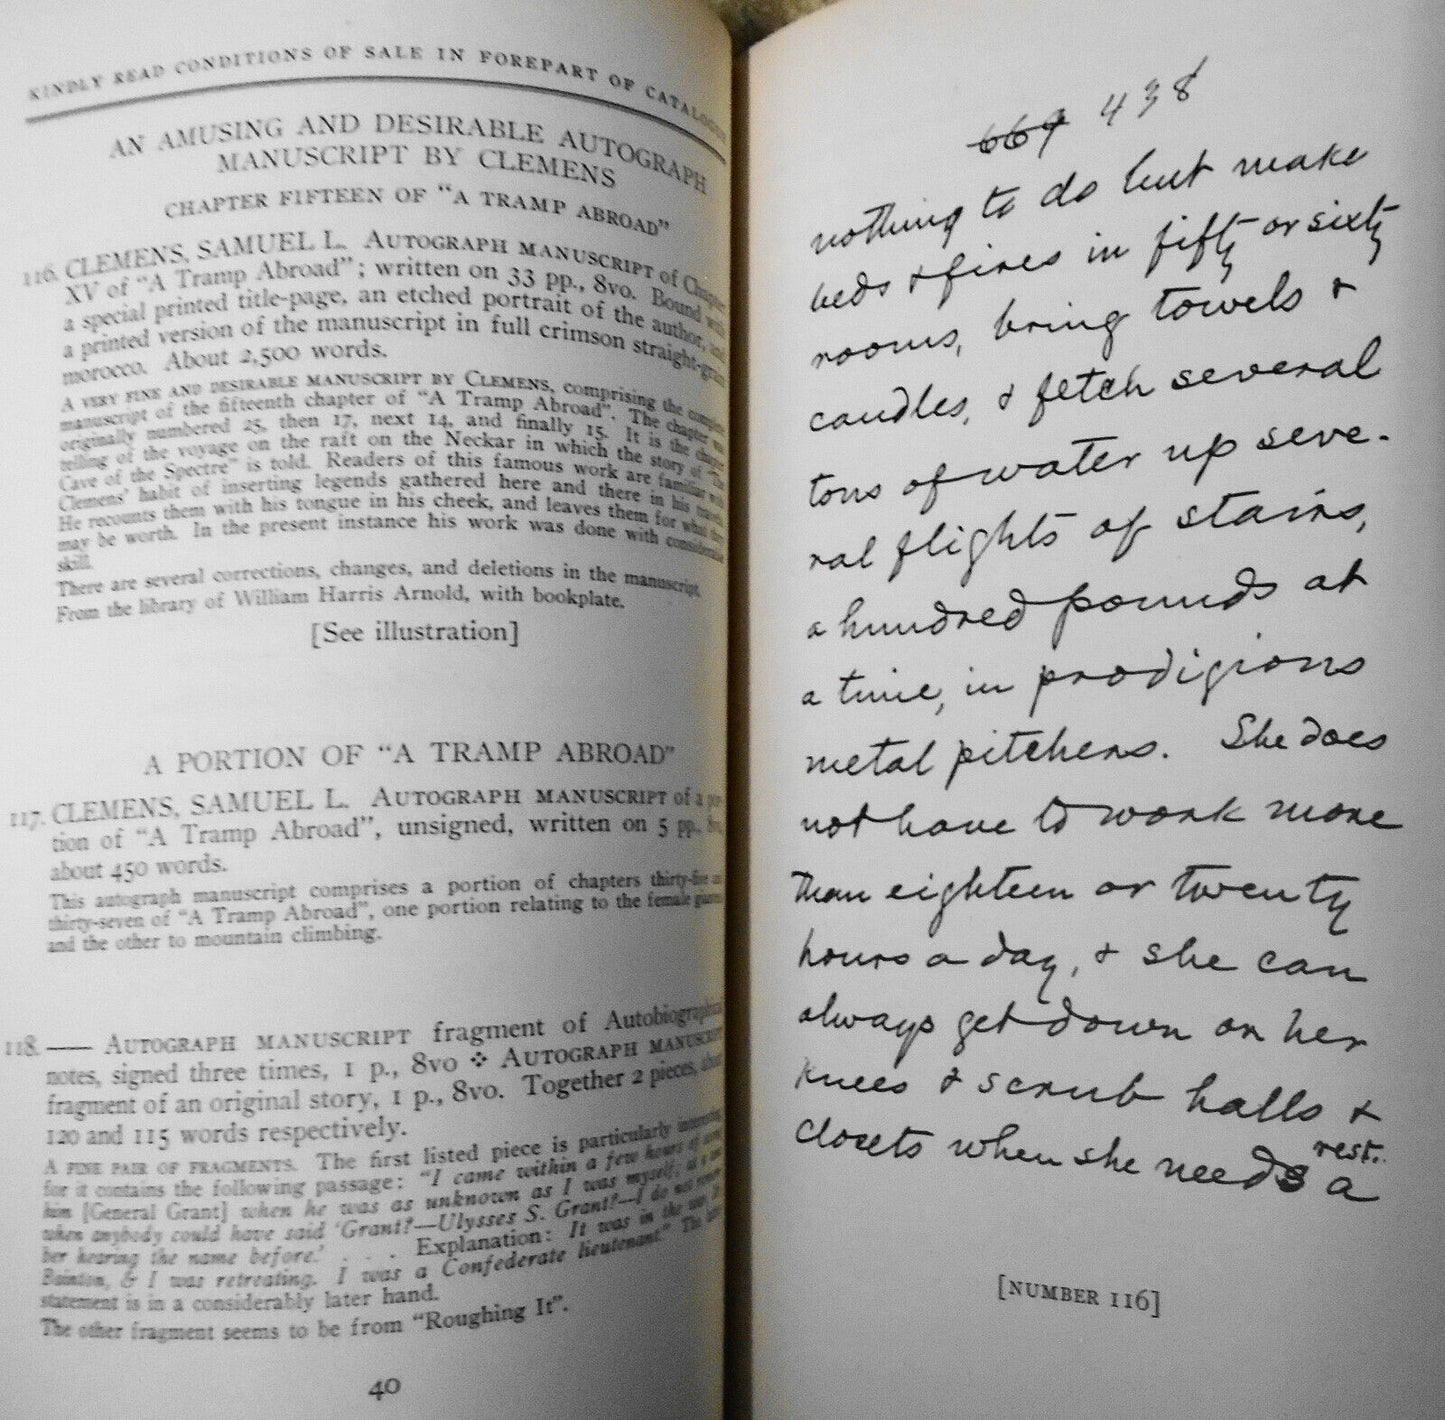 KINDLY READ CONDITIONS OF SALE IN FOREPART OF CATALOGUE
AN AMUSING AND DESIRABLE AUTOGRAPH
MANUSCRIPT BY CLEMENS
CHAPTER FIFTEEN OF "A TRAMP ABROAD"
116. CLEMENS, SAMUEL L. AUTOGRAPH MANUSCRIPT of Chapter
XV of "A Tramp Abroad"; written on 33 pp., 8vo. Bound with
a special printed title-page, an etched portrait of the author, and
a printed version of the manuscript in full crimson straight-grain
morocco. About 2,500 words.
A VERY FINE AND DESIRABLE MANUSCRIPT BY CLEMENS, comprising the complete
manuscript of the fifteenth chapter of "A Tramp Abroad". The chapter was
originally numbered 25, then 17, next 14, and finally 15. It is the chapter
telling of the voyage on the raft on the Neckar in which the story of "The
Cave of the Spectre" is told. Readers of this famous work are familiar with
Clemens' habit of inserting legends gathered here and there in his travels.
He recounts them with his tongue in his cheek, and leaves them for what they
may be worth. In the present instance his work was done with considerable
skill.
There are several corrections, changes, and deletions in the manuscript.
From the library of William Harris Arnold, with bookplate.
[See illustration]
A PORTION OF "A TRAMP ABROAD"
117. CLEMENS, SAMUEL L. AUTOGRAPH MANUSCRIPT of a por-
tion of "A Tramp Abroad", unsigned, written on 5 pp., 8vo,
about 450 words.
This autograph manuscript comprises a portion of chapters thirty-five
thirty-seven of "A Tramp Abroad", one portion relating to the female
and the other to mountain climbing.
118. —— AUTOGRAPH MANUSCRIPT fragment of Autobiographical
notes, signed three times, 1 p., 8vo ❖ AUTOGRAPH MANUSCRIPT
fragment of an original story, 1 p., 8vo. Together 2 pieces, about
120 and 115 words respectively.
A FINE PAIR OF FRAGMENTS. The first listed piece is particularly interesting
for it contains the following passage: "I came within a few hours of
him [General Grant] when he was as unknown as I was myself;
when anybody could have said 'Grant?—Ulysses S. Grant?—I do not
ber hearing the name before.' . . . Explanation: It was in the
& I was retreating. I was a Confederate lieutenant." The
statement is in a considerably later hand.
The other fragment seems to be from "Roughing It".
40
669 438
nothing to do but make
beds & fires in fifty or sixty
rooms, bring towels &
candles, & fetch several
tons of water up seve-
ral flights of stairs,
a hundred pounds at
a time, in prodigious
metal pitchers. She does
not have to work more
than eighteen or twenty
hours a day, & she can
always get down on her
knees & scrub halls &
closets when she needs a rest.
[NUMBER 116]